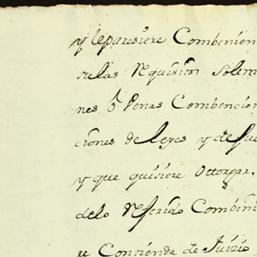 y le paresiere Combenien
sulas Requisitos Solem
nes ō Penas Combencion
ciones de leyes y de fue
y que quisiere Ottorgar.
delo Referido Combini
re Concienda de Juizio